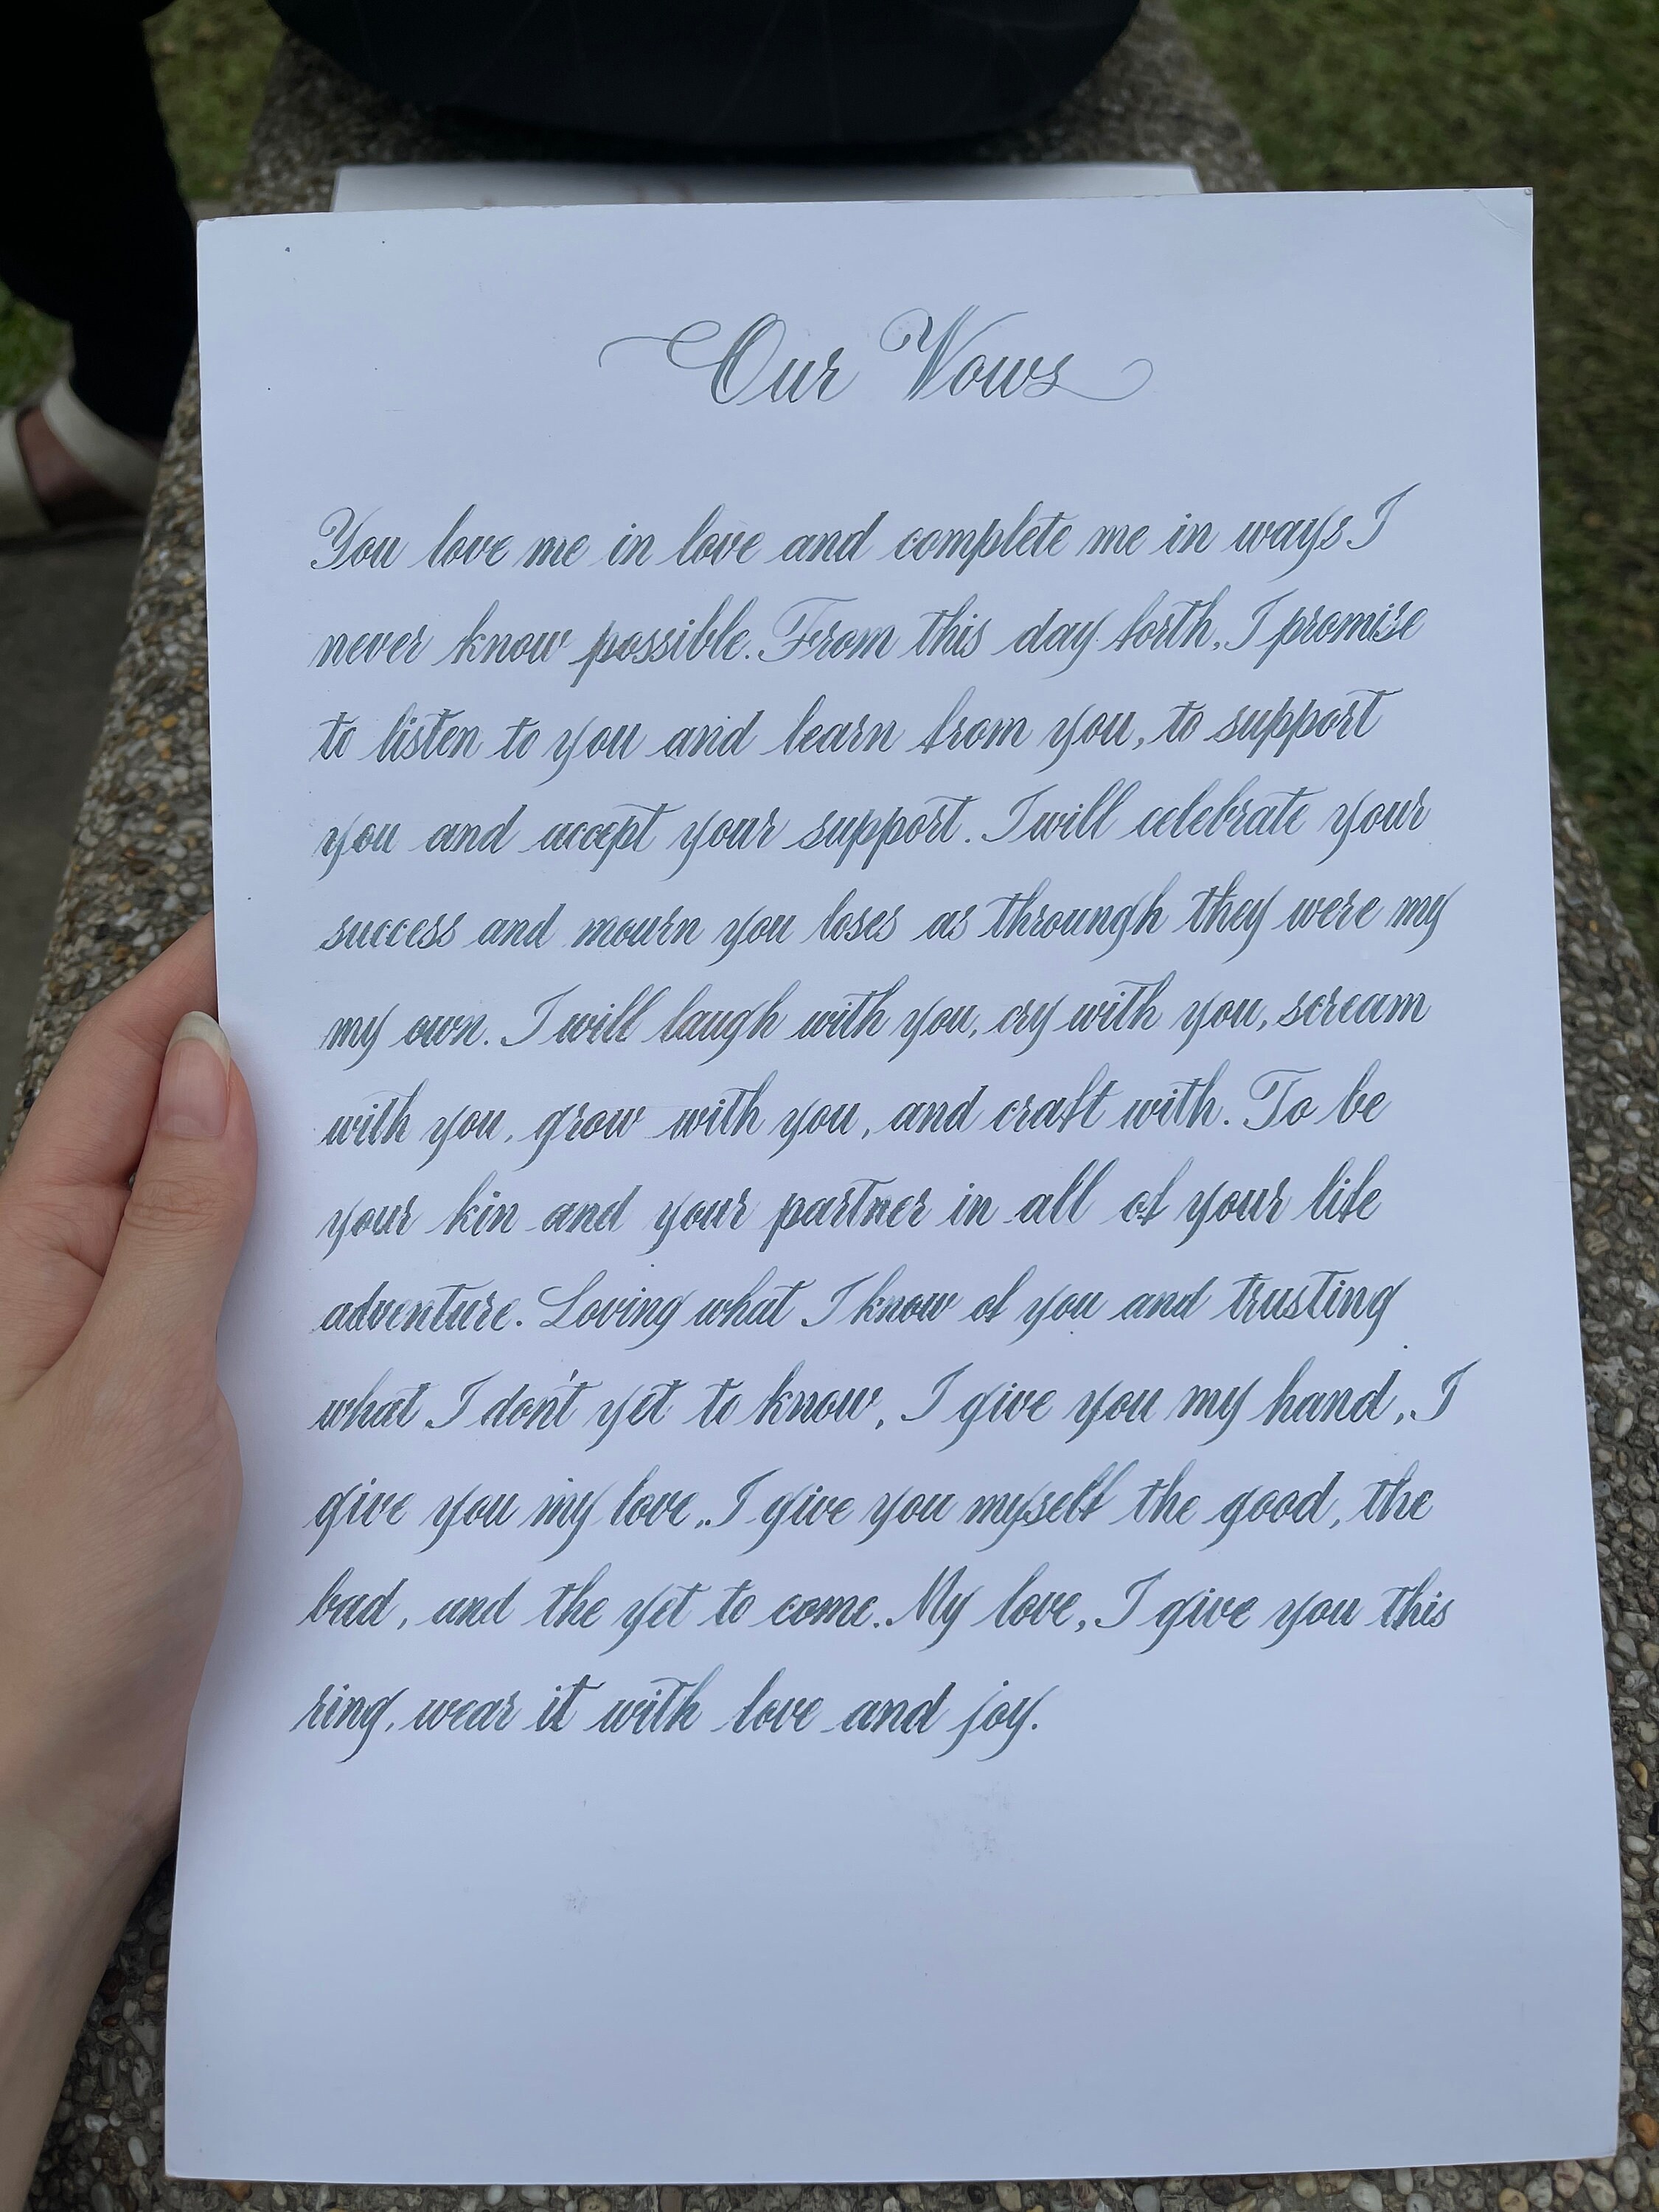 Our Vows
You love me in love and complete me in ways I
never know possible. From this day forth, I promise
to listen to you and learn from you, to support
you and accept your support. I will celebrate your
success and mourn you loses as throungh they were my
my own. I will laugh with you, cry with you, scream
with you, grow with you, and craft with. To be
your kin and your partner in all of your life
adventure. Loving what I know of you and trusting
what I don't yet to know, I give you my hand, I
give you my love, I give you myself the good, the
bad, and the yet to come. My love, I give you this
ring, wear it with love and joy.